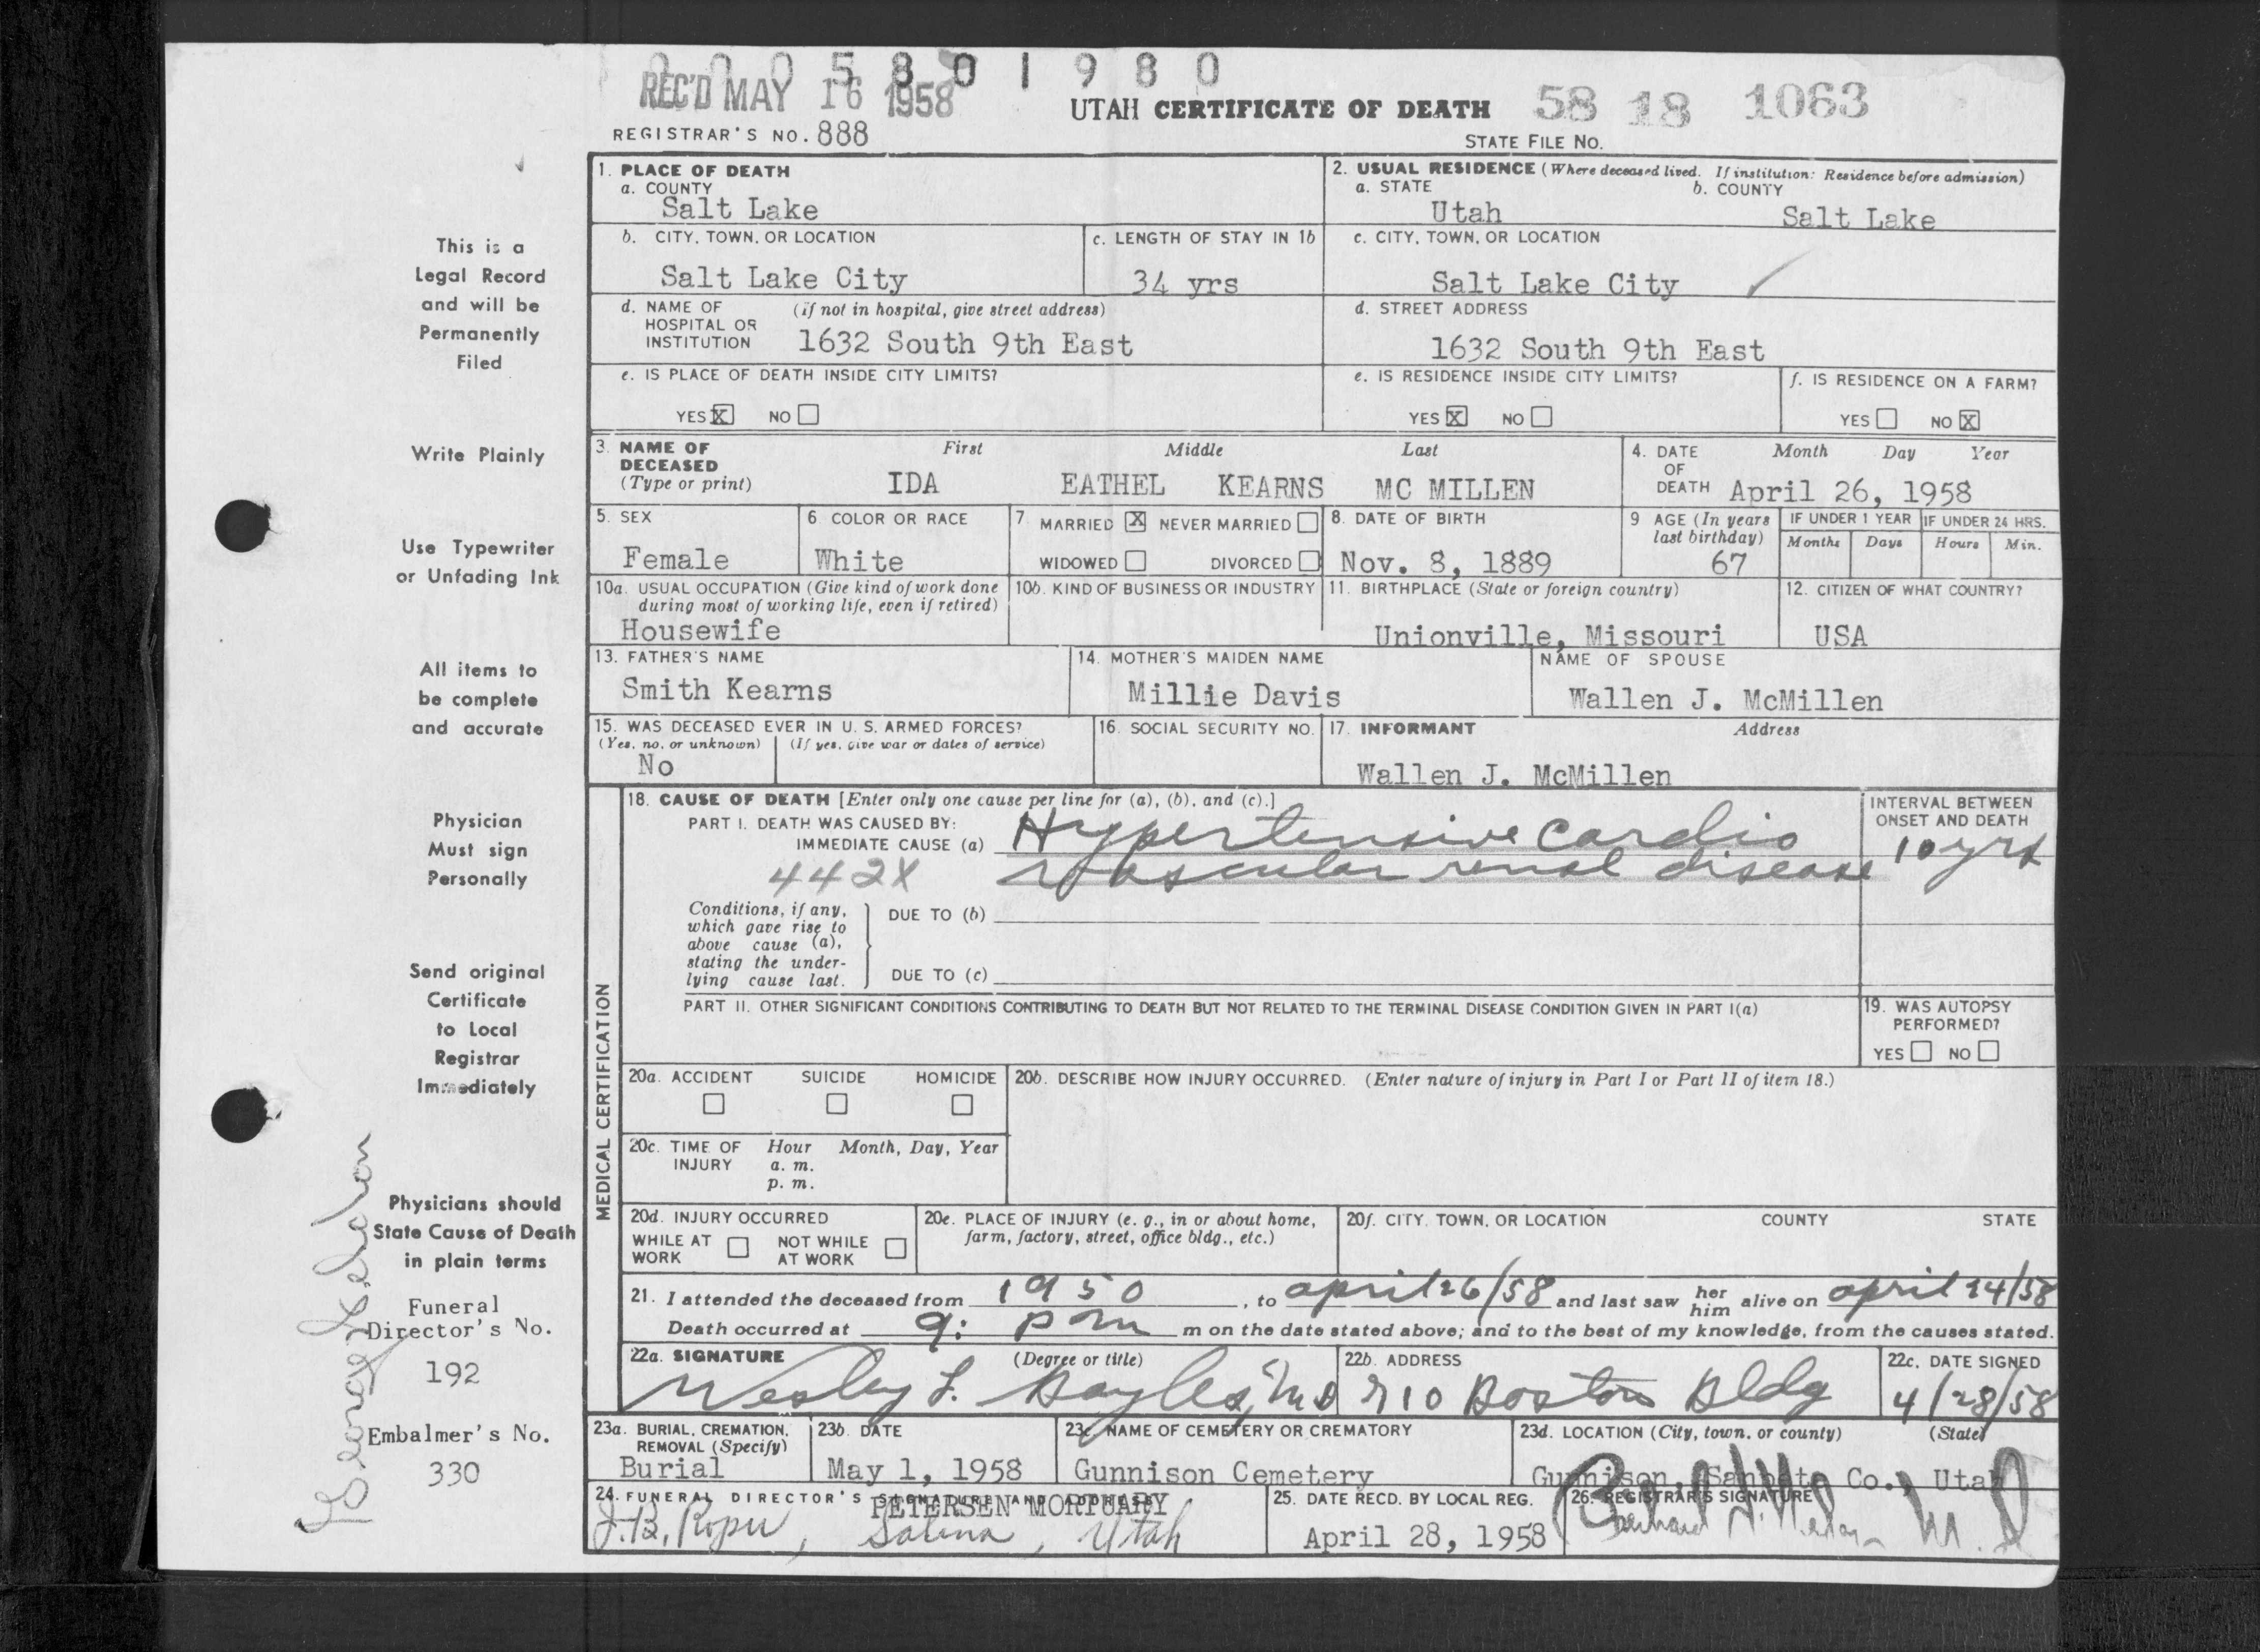 0005801980
REC'D MAY 16 1958
UTAH CERTIFICATE OF DEATH 58 18 1063
REGISTRAR'S NO. 888
STATE FILE NO.
1. PLACE OF DEATH
a. COUNTY
Salt Lake
2. USUAL RESIDENCE (Where deceased lived. If institution: Residence before admission)
a. STATE b. COUNTY
Utah Salt Lake
b. CITY, TOWN, OR LOCATION
Salt Lake City
c. LENGTH OF STAY IN 1b
34 yrs
c. CITY, TOWN, OR LOCATION
Salt Lake City
d. NAME OF (If not in hospital, give street address)
HOSPITAL OR
INSTITUTION 1632 South 9th East
d. STREET ADDRESS
1632 South 9th East
e. IS PLACE OF DEATH INSIDE CITY LIMITS?
YES X NO
e. IS RESIDENCE INSIDE CITY LIMITS?
YES X NO
f. IS RESIDENCE ON A FARM?
YES NO X
3. NAME OF First Middle Last
DECEASED
(Type or print) IDA EATHEL KEARNS MC MILLEN
4. DATE Month Day Year
OF
DEATH April 26, 1958
5. SEX
Female
6 COLOR OR RACE
White
7 MARRIED X NEVER MARRIED
WIDOWED DIVORCED
8. DATE OF BIRTH
Nov. 8, 1889
9 AGE (In years
last birthday)
67
IF UNDER 1 YEAR
Months Days
IF UNDER 24 HRS.
Hours Min.
10a. USUAL OCCUPATION (Give kind of work done
during most of working life, even if retired)
Housewife
10b. KIND OF BUSINESS OR INDUSTRY
11. BIRTHPLACE (State or foreign country)
Unionville, Missouri
12. CITIZEN OF WHAT COUNTRY?
USA
13. FATHER'S NAME
Smith Kearns
14. MOTHER'S MAIDEN NAME
Millie Davis
NAME OF SPOUSE
Wallen J. McMillen
15. WAS DECEASED EVER IN U. S. ARMED FORCES?
(Yes, no, or unknown) (If yes, give war or dates of service)
No
16. SOCIAL SECURITY NO.
17. INFORMANT Address
Wallen J. McMillen
MEDICAL CERTIFICATION
18. CAUSE OF DEATH [Enter only one cause per line for (a), (b), and (c).]
PART I. DEATH WAS CAUSED BY:
IMMEDIATE CAUSE (a) Hypertensive Cardio
442X vascular renal disease
INTERVAL BETWEEN
ONSET AND DEATH
10 yrs
Conditions, if any,
which gave rise to
above cause (a),
stating the under-
lying cause last.
DUE TO (b)
DUE TO (c)
PART II. OTHER SIGNIFICANT CONDITIONS CONTRIBUTING TO DEATH BUT NOT RELATED TO THE TERMINAL DISEASE CONDITION GIVEN IN PART I(a)
19. WAS AUTOPSY
PERFORMED?
YES NO
20a. ACCIDENT SUICIDE HOMICIDE
20b. DESCRIBE HOW INJURY OCCURRED. (Enter nature of injury in Part I or Part II of item 18.)
20c. TIME OF Hour Month, Day, Year
INJURY a. m.
p. m.
20d. INJURY OCCURRED
WHILE AT NOT WHILE
WORK AT WORK
20e. PLACE OF INJURY (e. g., in or about home,
farm, factory, street, office bldg., etc.)
20f. CITY, TOWN, OR LOCATION COUNTY STATE
21. I attended the deceased from 1950, to april 26/58 and last saw her him alive on april 24/58
Death occurred at 9: pm m on the date stated above; and to the best of my knowledge, from the causes stated.
22a. SIGNATURE (Degree or title)
Wesley F. Bayles, MD
22b. ADDRESS
710 Boston Bldg
22c. DATE SIGNED
4/28/58
23a. BURIAL, CREMATION,
REMOVAL (Specify)
Burial
23b. DATE
May 1, 1958
23c. NAME OF CEMETERY OR CREMATORY
Gunnison Cemetery
23d. LOCATION (City, town, or county) (State)
Gunnison, Sanpete Co., Utah
24. FUNERAL DIRECTOR'S SIGNATURE AND ADDRESS
PETERSEN MORTUARY
J. B. Roper, Salina, Utah
25. DATE RECD. BY LOCAL REG.
April 28, 1958
26. REGISTRAR'S SIGNATURE
M. D
This is a
Legal Record
and will be
Permanently
Filed
Write Plainly
Use Typewriter
or Unfading Ink
All items to
be complete
and accurate
Physician
Must sign
Personally
Send original
Certificate
to Local
Registrar
Immediately
Physicians should
State Cause of Death
in plain terms
Funeral
Director's No.
192
Embalmer's No.
330
George